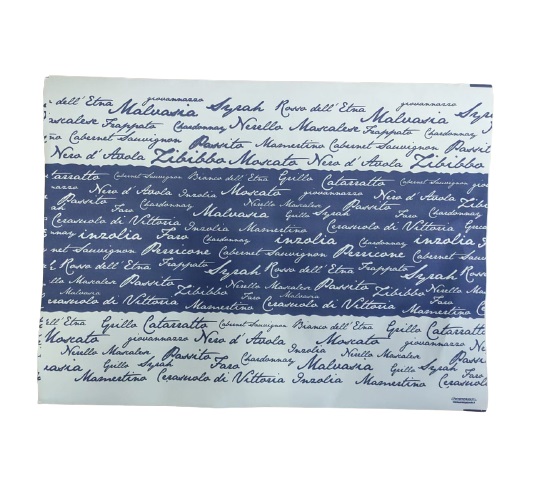 dell'Etna giovannazzo Malvasia Syrah Rosso dell'Etna giovannazzo Sy
Frappato Chardonnay Nerello Mascalese Frappato Chardonnay
Cabernet Sauvignon Passito Mamertino Cabernet Sauvignon Passit
Nero d'Avola Zibibbo Moscato Nero d'Avola Zibibbo
Cabernet Sauvignon Bianco dell'Etna Grillo Catarratto Cabernet Sauvignon
Nero d'Avola Inzolia Moscato giovannazzo Nero d'Avola
Passito Faro Chardonnay Nerello Mascalese Passito Chardonnay Zibibbo
Cerasuolo di Vittoria Malvasia Grillo Syrah Faro Cerasuolo di Vittoria
inzolia Faro Chardonnay Inzolia Mamertino inzolia Faro Chardonnay inzolia
net Sauvignon Perricone Cabernet Sauvignon Perricone Cabernet Sauvignon
Rosso dell'Etna Frappato Syrah Rosso dell'Etna Frappato Syrah Rosso
Nerello Mascalese Passito Zibibbo Nerello Mascalese Passito Zibibbo
Malvasia Faro Malvasia Faro
Cerasuolo di Vittoria Mamertino Cerasuolo di Vittoria Mamertino
ell'Etna Grillo Catarratto Cabernet Sauvignon Bianco dell'Etna Grillo Catarratto
Moscato giovannazzo Nero d'Avola Inzolia Moscato giovannazzo
Nerello Mascalese Passito Chardonnay Nerello Mascalese Passito
Grillo Syrah Faro Malvasia Grillo Syrah Faro
Mamertino Cerasuolo di Vittoria Inzolia Mamertino Cerasuolo